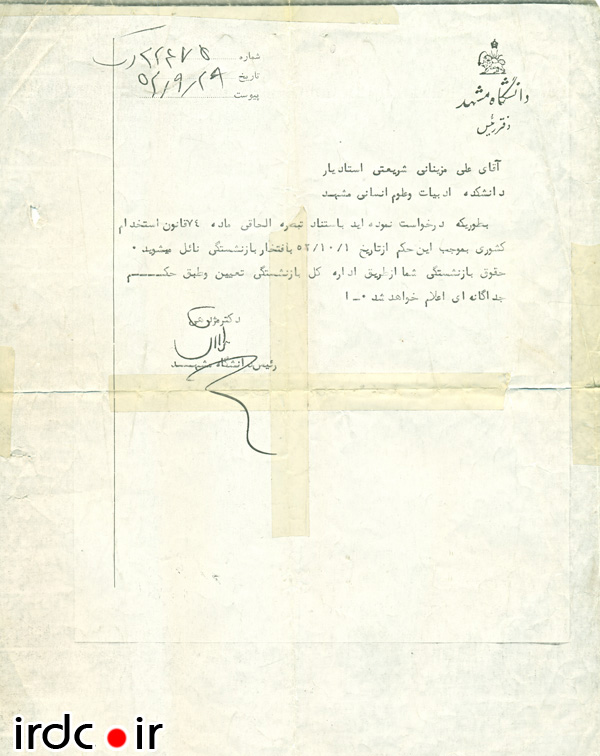 شماره ۲۲۴۷۵
تاریخ ۵۲/۹/۲۹
پیوست
دانشگاه مشهد
دفتر رئیس
آقای علی مزینانی شریعتی استادیار
دانشکده ادبیات وعلوم انسانی مشهد
بطوریکه درخواست نموده اید باستناد تبصره الحاقی ماده ۷۴قانون استخدام
کشوری بموجب این حکم ازتاریخ ۵۲/۱۰/۱ بافتخار بازنشستگی نائل میشوید .
حقوق بازنشستگی شما ازطریق اداره کل بازنشستگی تعیین وطبق حکم
جداگانه ای اعلام خواهد شد .ـ ا
دکتر
رئیس دانشگاه مشهد
irdc.ir